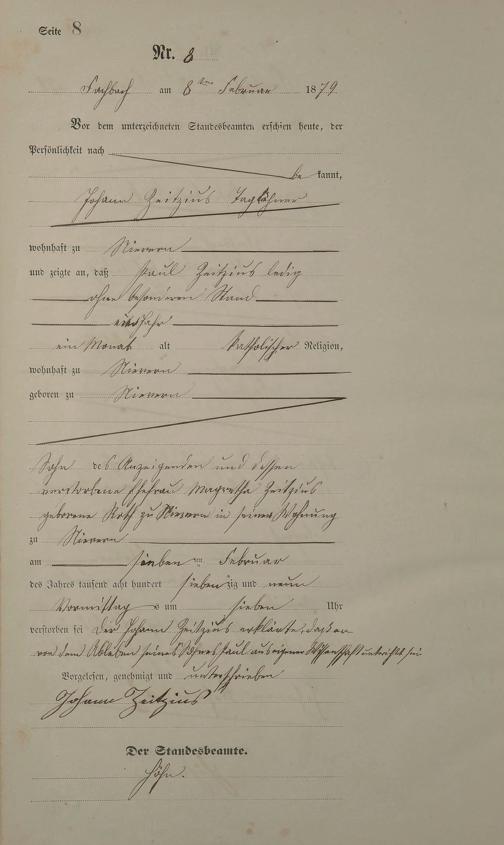 Seite 8
Nr. 8
Fachbach am 8ten Februar 1879
Vor dem unterzeichneten Standesbeamten erschien heute, der
Persönlichkeit nach
be kannt,
Johann Zeitzius Taglöhner
wohnhaft zu Nievern
und zeigte an, daß Paul Zeitzius ledig
ohne besonderen Stand
ein Jahr
ein Monat alt katholischer Religion,
wohnhaft zu Nievern
geboren zu Nievern
Sohn des Anzeigenden und dessen
verstorbene Ehefrau Magretha Zeitzius
geborene Roth zu Nievern in seiner Wohnung
zu Nievern
am sieben ten Februar
des Jahres tausend acht hundert siebenzig und neun
Vormittags um sieben Uhr
verstorben sei Der Johann Zeitzius erklärte, daß er
von dem Ableben seines Sohnes Paul aus eigener Wissenschaft unterrichtet sei
Vorgelesen, genehmigt und unterschrieben
Johann Zeitzius
Der Standesbeamte.
Höhn.